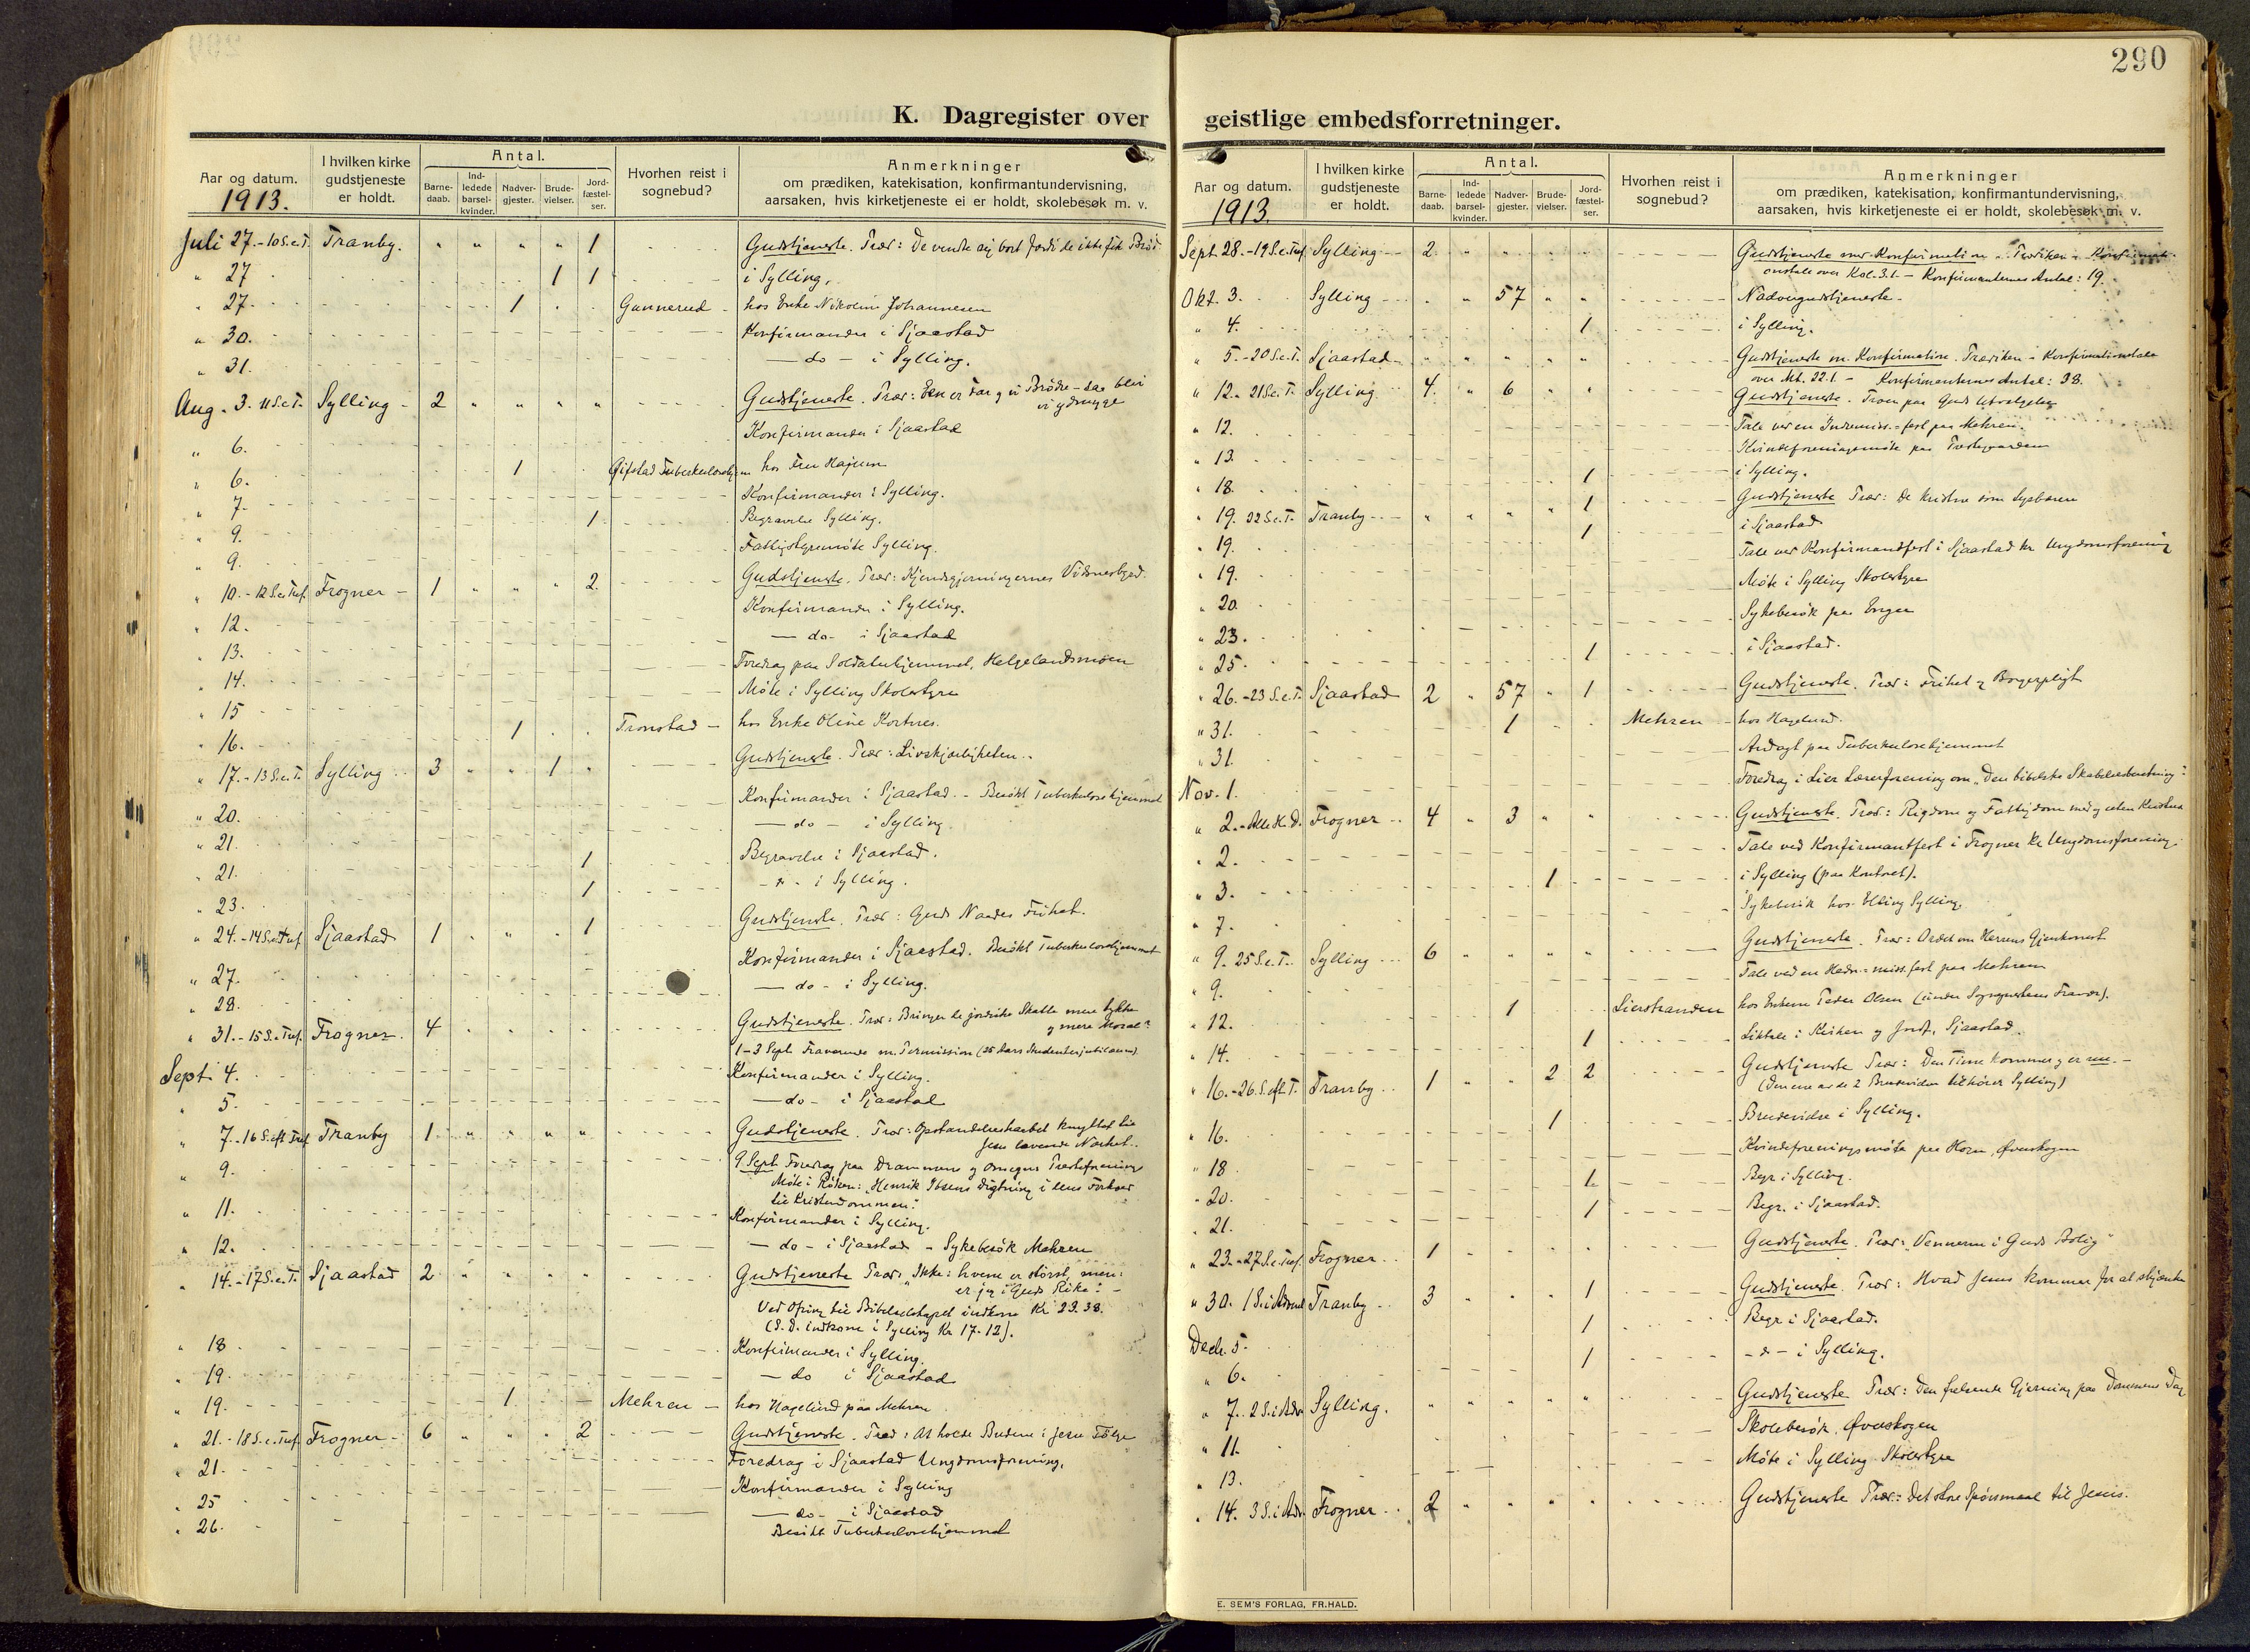 290
K. Dagregister over geistlige embedsforretninger.
Aar og datum.
1913.
I hvilken kirke gudstjeneste er holdt.
Antal.
Barne-daab.
Ind-ledede barsel-kvinder.
Nadver-gjester.
Brude-vielser.
Jord-fæstel-ser.
Hvorhen reist i sognebud?
Anmerkninger
om prædiken, katekisation, konfirmantundervisning,
aarsaken, hvis kirketjeneste ei er holdt, skolebesøk m. v.
Juli 27.-10 S.e.T. Tranby. " " " " 1 Gudstjeneste. Præd: De vendte sig bort fordi de ikke fik Brød
" 27 1 1 i Sylling.
" 27. 1 Gunnerud - hos Enke Nikoline Johannesen
" 30. Konfirmander i Sjaastad
" 31. - do - i Sylling.
Aug. 3. 11 S.e.T. Sylling - 2 " " " " Gudstjeneste. Præd: Een er Far og vi Brødre - saa blir
vi ydmyge
" 6. Konfirmander i Sjaastad
" 6. 1 Gifstad Tuberkulosehjem hos Fru
" 7. Konfirmander i Sylling.
" 9. 1 Begravelse Sylling.
" 9. Fattigstyremöte Sylling.
" 10.-12 S.e.Tref. Frogner - 1 " " " 2. Gudstjeneste. Præd: Kjendsgjerningernes Vidnesbyrd.
" 12. Konfirmander i Sylling.
" 13. - do - i Sjaastad
" 14. Foredrag paa Soldaterhjemmet, Helgelandsmoen
" 15 Möte i Sylling Skolestyre
" 16. 1 Tronstad - hos Enke Oline Kortnes.
" 17.-13 S.e.T. Sylling 3 " " 1 " Gudstjeneste. Præd: Livskjærligheten.
" 20. Konfirmander i Sjaastad. - Besökt Tuberkulosehjemmet
" 21. - do - i Sylling
" 21. 1 Begravelse i Sjaastad.
" 23. 1 - do - i Sylling.
" 24.-14 S.e.Tref. Sjaastad 1 " " " 1 Gudstjeneste. Præd: Guds Naades Frihet.
" 27. Konfirmander i Sjaastad. Besökt Tuberkulosehjemmet
" 28. - do - i Sylling.
" 31.-15 S.e.Tref. Frogner. 4 " " " " Gudstjeneste. Præd: Bringer de jordiske Skatte mere Lykke
og mere Moral?
1-3 Sept. Fraværende m. Permission (25 Aars Studenterjubilæum).
Sept. 4. Konfirmander i Sylling.
" 5. - do - i Sjaastad
" 7.-16 S.eft Tref Tranby 1 " " " " Gudstjeneste. Præd: Opstandelseshaabet knyttet til
Jesu levende Nærhet.
" 9. 9 Sept. Foredrag paa Drammens og Omegns Præsteforenings
Möte i Röken: "Henrik Ibsens Digtning i dens Forhold
til Kristendommen".
" 11. Konfirmander i Sylling.
" 12. - do - i Sjaastad - Sykebesök Mehren
" 14.-17 S.e.T. Sjaastad 2 " " " " Gudstjeneste Præd: "Ikke: hvem er störst, men:
er jeg i Guds Rike".
Ved Ofring til Bibelselskapet indkom Kr 23.38.
(S. D. indkom i Sylling Kr 17.12).
" 18 Konfirmander i Sylling.
" 19. - do i Sjaastad
" 19. 1 Mehren - hos Hagelund paa Mehren
" 21.-18 S.e.Tref. Frogner - 6 " " " 2 Gudstjeneste. Præd: At holde Budene i Jesu Fölge
" 21. Foredrag i Sjaastad Ungdomsforening.
" 25 Konfirmander i Sylling
" 26. - do - i Sjaastad
Besökt Tuberkulosehjemmet
Aar og datum.
1913
I hvilken kirke gudstjeneste er holdt.
Antal.
Barne-daab.
Ind-ledede barsel-kvinder.
Nadver-gjester.
Brude-vielser.
Jord-fæstel-ser.
Hvorhen reist i sognebud?
Anmerkninger
om prædiken, katekisation, konfirmantundervisning,
aarsaken, hvis kirketjeneste ei er holdt, skolebesøk m. v.
Sept. 28.-19 S.e.Tref Sylling - 2 " " " " Gudstjeneste med Konfirmation - Prædiken - Konfirmati-
onstale over Kol. 3.1. - Konfirmanternes Antal: 19.
Okt. 3. Sylling - " " 57 " " Nadvergudstjeneste.
" 4. 1 i Sylling.
" 5.-20 S.e.T. Sjaastad " " " " " Gudstjeneste m. Konfirmation. Prædiken - Konfirmationstale
over Mt. 22.1. - Konfirmanternes Antal: 38.
" 12.-21 S.e.T. Sylling 4. " 6 " " Gudstjeneste. Troen paa Guds Utvælgelse
" 12. Tale ved en Indremiss.-fest paa Mehren.
" 13. Kvindeforeningsmöte paa Præstegaarden
" 18. 1 i Sylling.
" 19. 22 S.e.T. Tranby - " " " " 1 Gudstjeneste Præd: De kristne som Lysbærere
" 19. 1 i Sjaastad
" 19. Tale ved Konfirmantfest i Sjaastad kr Ungdomsforening
" 20. Möte i Sylling Skolestyre
" 23. Sykebesök paa Enger
" 25. 1 i Sjaastad.
" 26.-23 S.e.T. Sjaastad 2 " 57 " 1 Gudstjeneste. Præd: Frihet og Borgerpligt
" 31. 1 Mehren - hos Hagelund.
" 31. Andagt paa Tuberkulosehjemmet
Nov. 1. Foredrag i Lier Lærerforening om "Den bibelske Skabelsesberetning".
" 2.-Alle H. D. Frogner 4 " 3 " " Gudstjeneste. Præd: Rigdom og Fattigdom med og uten Kristus
" 2. Tale ved Konfirmantfest i Frogner kr Ungdomsforening.
" 3. 1 i Sylling (paa Kontoret).
" 7. Sykebesök hos Elling Sylling
" 9. 25 S.e.T. Sylling 6 " " " " Gudstjeneste. Præd: Ordet om Herrens Gjenkomst
" 9. Tale ved en Hedn.-miss.fest paa Mehren
" 12. 1 Lierstranden hos Enkem. Peder Olsen (under Sogneprestens Fravær).
" 14. 1 Liktale i Kirken og Jordf. Sjaastad.
" 16.-26. S. eft. T. Tranby 1 " " 2 2 Gudstjeneste Præd: Den Time kommer og er nu. -
(Den ene av de 2 Brudevielser tilhører Sylling)
" 16. 1 Brudevielse i Sylling.
" 18 Kvindeforeningsmöte paa Horn, Överskogen
" 20. 1 Begr i Sylling.
" 21. 1 Begr. i Sjaastad.
" 23.-27 S.e.Tref. Frogner 1 " " " " Gudstjeneste. Præd: "Vennerne i Guds Bolig"
" 30. 1 S. i Advent Tranby 3 " " " 1 Gudstjeneste. Præd: Hvad Jesus kommer for at skjænke
Decb. 5. 1 Begr i Sjaastad.
" 6. 1 - do - i Sylling.
" 7. 2 S. i Adv. Sylling. " " " " " Gudstjeneste Præd: Den frelsende Gjerning paa Dommens Dag
" 11. Skolebesök. Överskogen
" 13. Möte i Sylling Skolestyre
" 14. 3 S. i Adv. Frogner 2 " " " " Gudstjeneste Præd: Det store Spörsmaal til Jesus.
E. SEM'S FORLAG, FR.HALD.